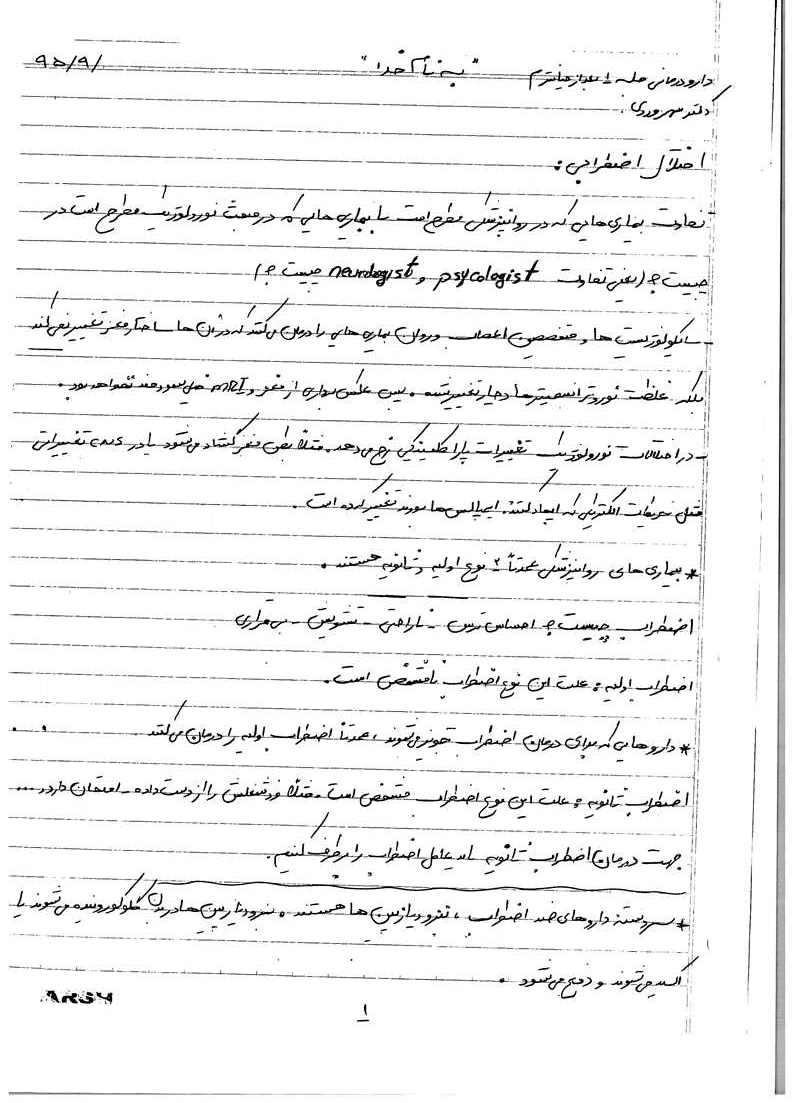 "به نام خدا"
۹۵/۹/
دارودرمانی جلسه ۱ بعد از میانترم
دکتر سهروردی.
اختلال اضطرابی:
تفاوت بیماری هایی که در روانپزشکی مطرح است با بیماری هایی که در مبحث نورولوژیک مطرح است در
چیست؟ (یعنی تفاوت psycologist و neurologist چیست؟)
- سایکولوژیست ها و متخصصین اعصاب و روان بیماری هایی را درمان می کنند که در آن ها ساختار مغز تغییر نمی کند
بلکه غلظت نوروترانسمیترها دچار تغییر شده. پس عکس برداری از مغز و MRI خیلی سودمند نخواهد بود.
- در اختلالات نورولوژیک تغییرات پاراکلینیکی رخ می دهد. مثلاً بطن مغز گشاد می شود یا در CNS تغییراتی
مثل تحریکات الکتریکی که ایجاد کننده ایمپالس ها بودند تغییر کرده است.
* بیماری های روانپزشکی عمدتاً ۲ نوع اولیه و ثانویه هستند.
اضطراب چیست؟ احساس ترس - ناراحتی - تشویش - بی قراری
اضطراب اولیه: علت این نوع اضطراب نامشخص است.
* داروهایی که برای درمان اضطراب تجویز می شوند، عمدتاً اضطراب اولیه را درمان می کنند
اضطراب ثانویه: علت این نوع اضطراب مشخص است. مثلاً فرد شغلش را از دست داده - امتحان دارد...
جهت درمان اضطراب ثانویه باید عامل اضطراب را برطرف کنیم.
* سردسته داروهای ضد اضطراب، بنزودیازپین ها هستند. بنزودیازپین ها در بدن گلوکورونیده می شوند یا
اکسید می شوند و دفع می شود.
ARSH
۱